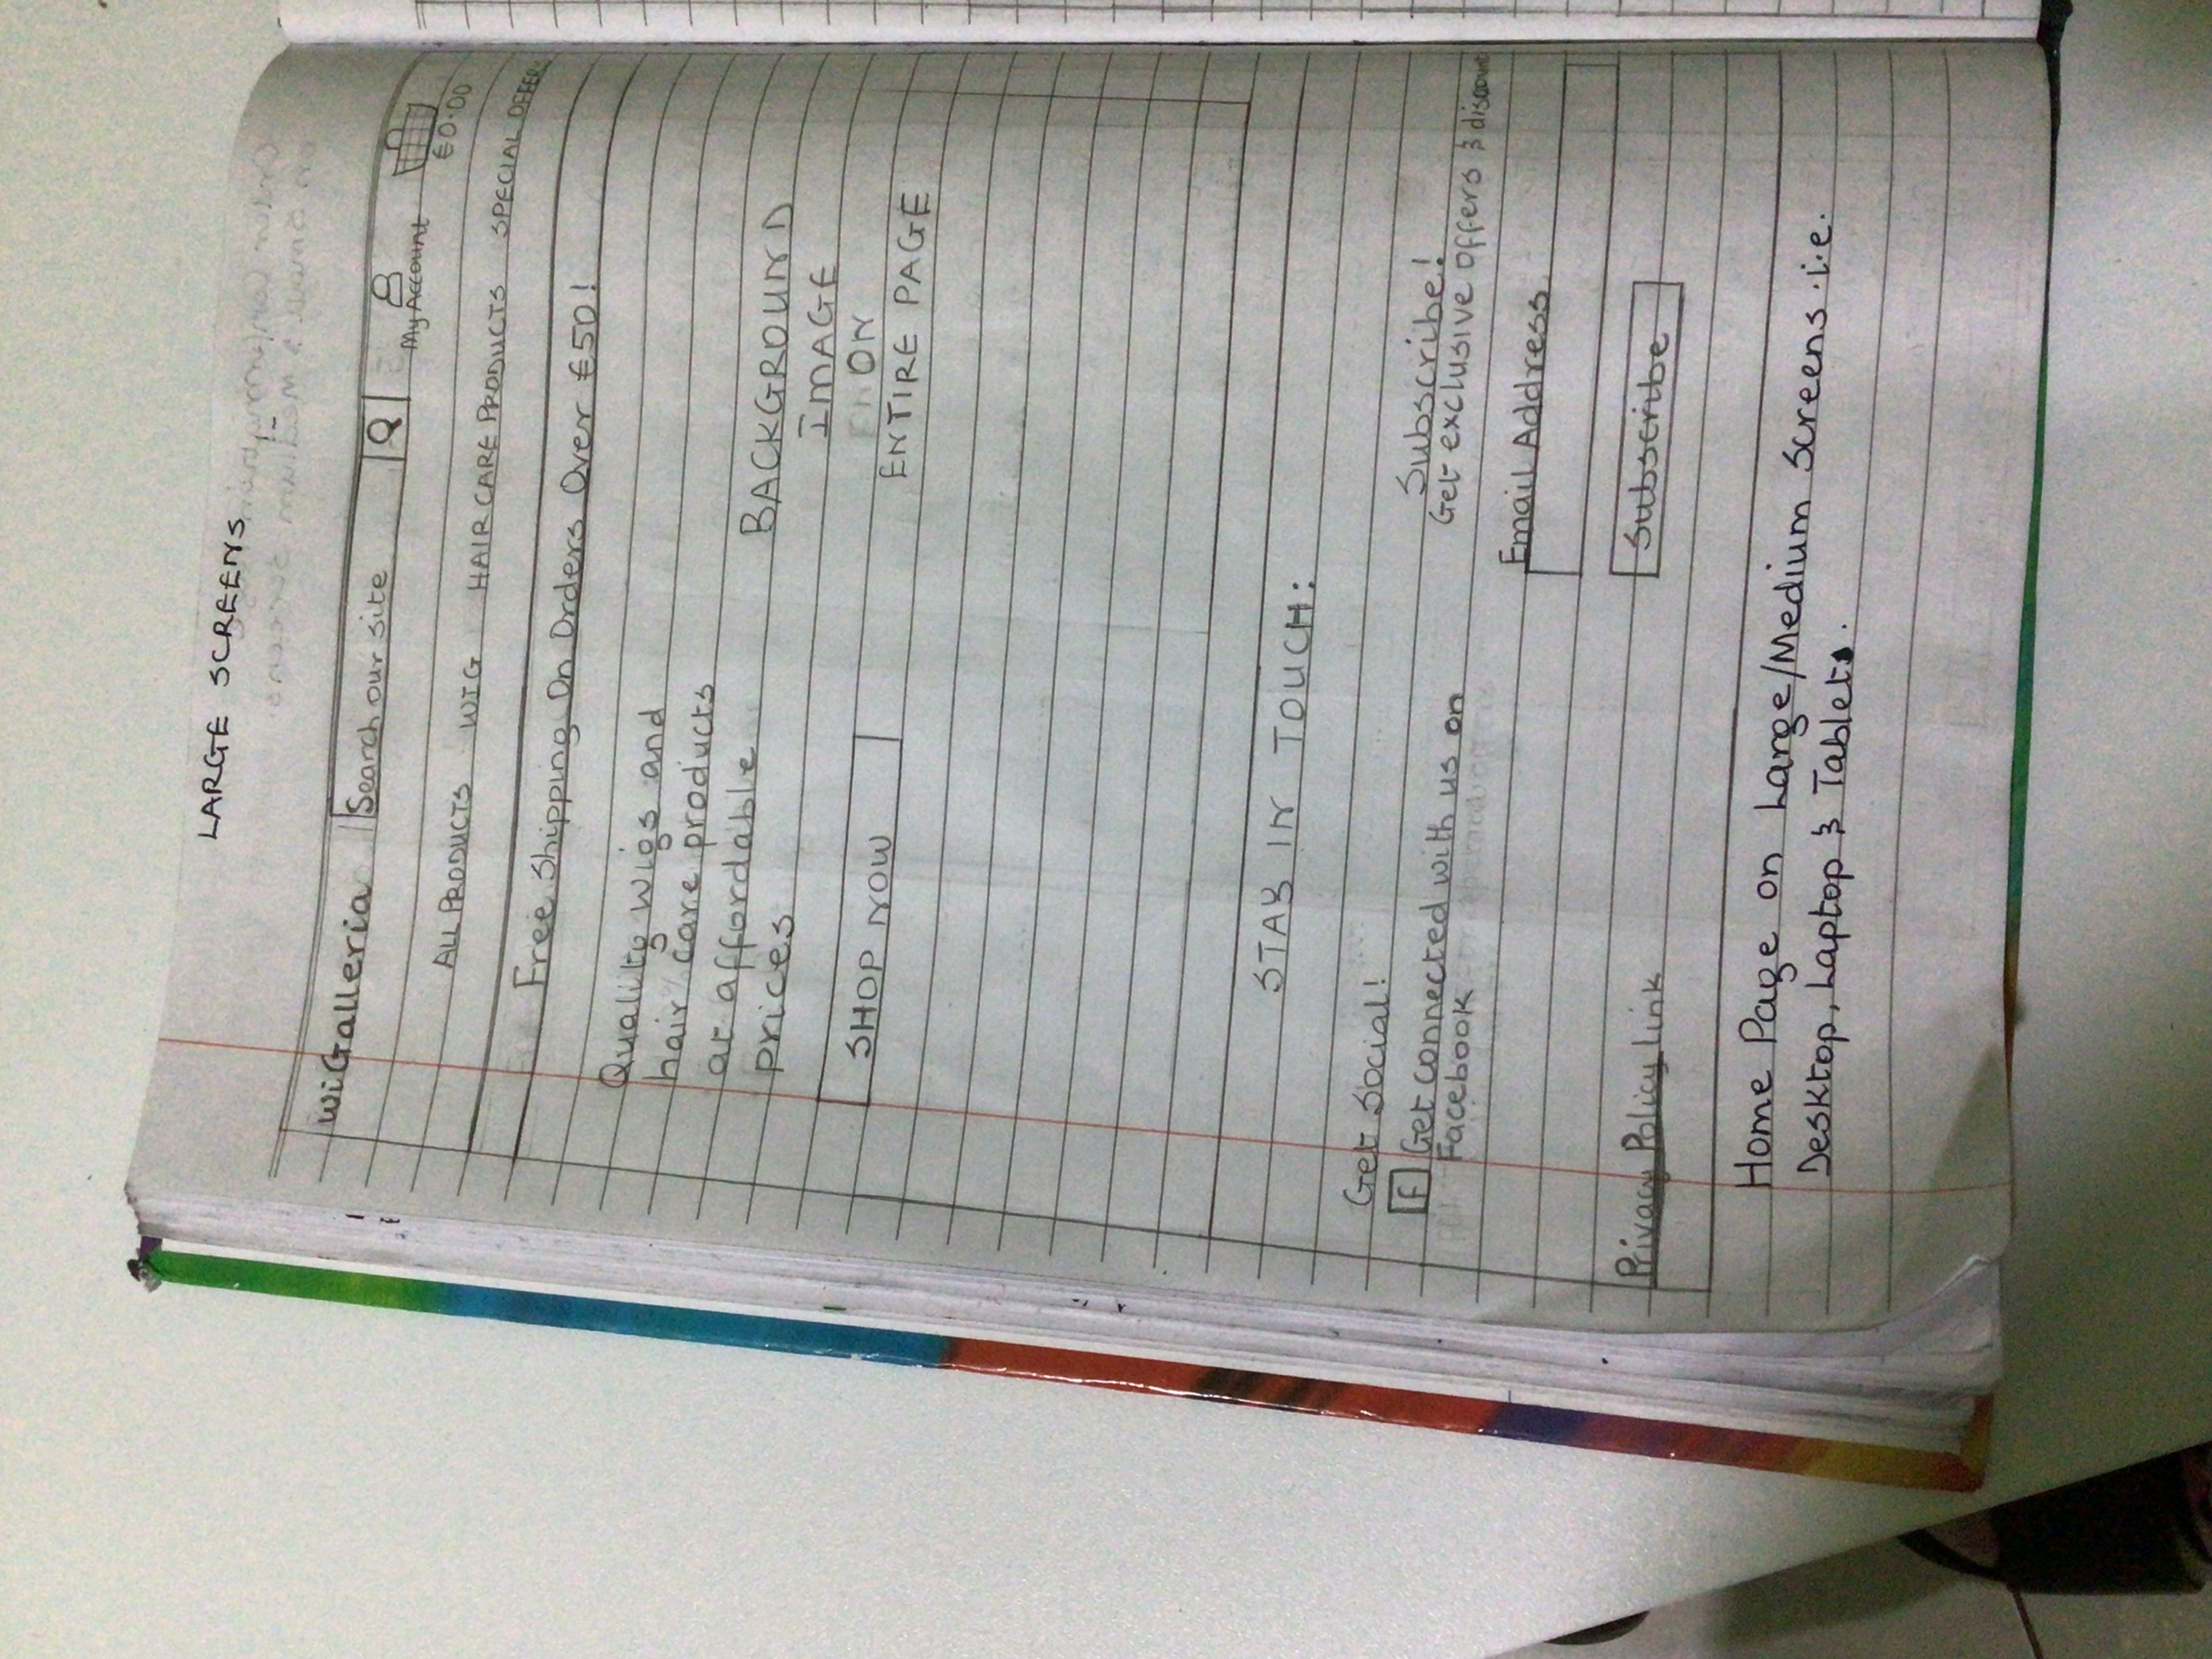 LARGE SCREENS
wiGalleria Search our site My Account
€0.00
ALL PRODUCTS WIG HAIR CARE PRODUCTS SPECIAL OFFERS
Free Shipping On Orders Over €50!
Quality wigs and
hair care products
at affordable
prices
BACKGROUND
IMAGE
ON
ENTIRE PAGE
SHOP NOW
STAY IN TOUCH:
Get Social!
F Get connected with us on
Facebook
Subscribe!
Get exclusive offers & discount
Email Address
Privacy Policy link
Subscribe
Home Page on Large/Medium Screens i.e.
Desktop, Laptop & Tablets.